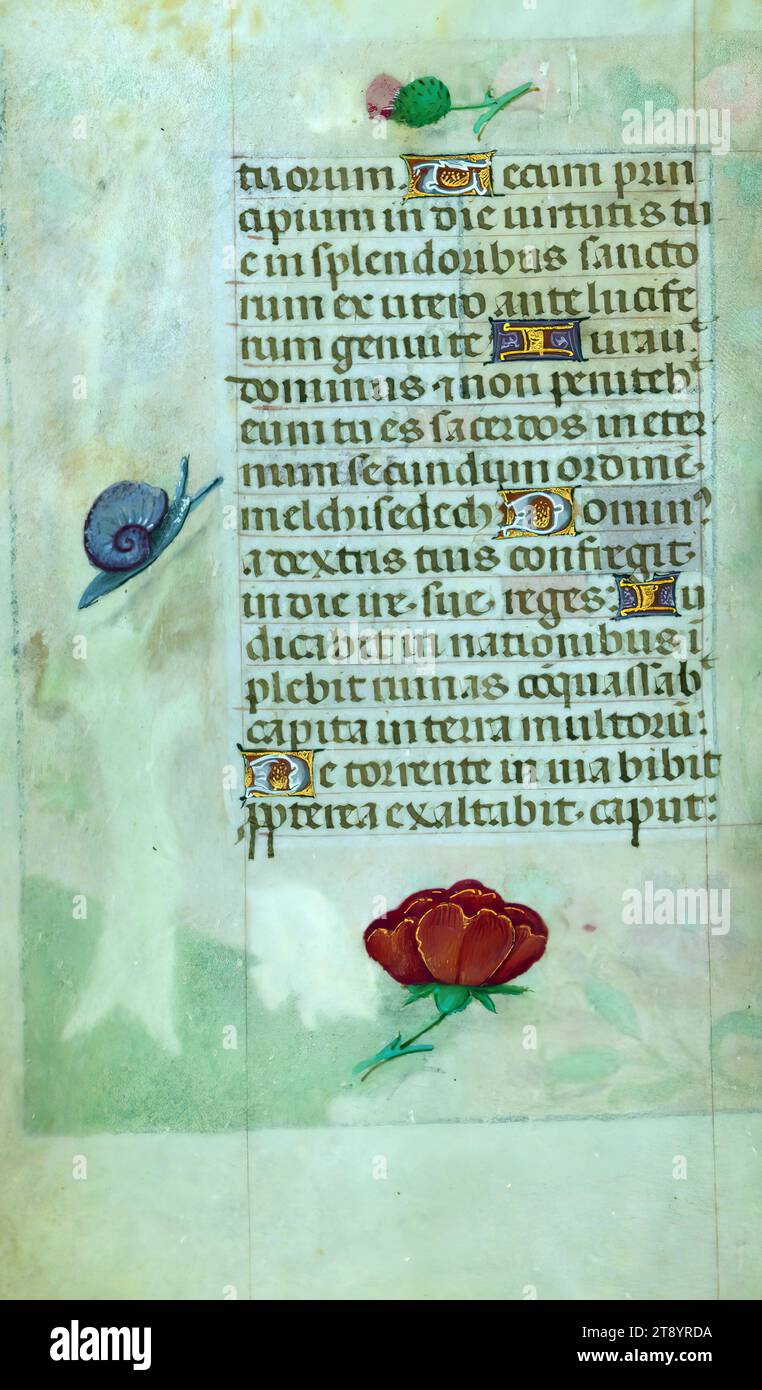 tuorum. Tecum prin
cipium in die uirtutis tu
e in splendoribus sancto
rum ex utero ante lucife
rum genui te Iurauᵗ
dominus ⁊ non penitebᵗ
eum tu es sacerdos in eter
num secundum ordinē.
melchisedech Dominꝰ
a dextris tuis confregit.
in die ire. sue. reges: Iu
dicabit in nationibus ī
plebit ruinas cōquassabᵗ
capita in terra multorū:
De torrente in uia bibit
ꝓpterea exaltabit. caput:
alamy
alamy
Image ID: 2T8YRDA
www.alamy.com